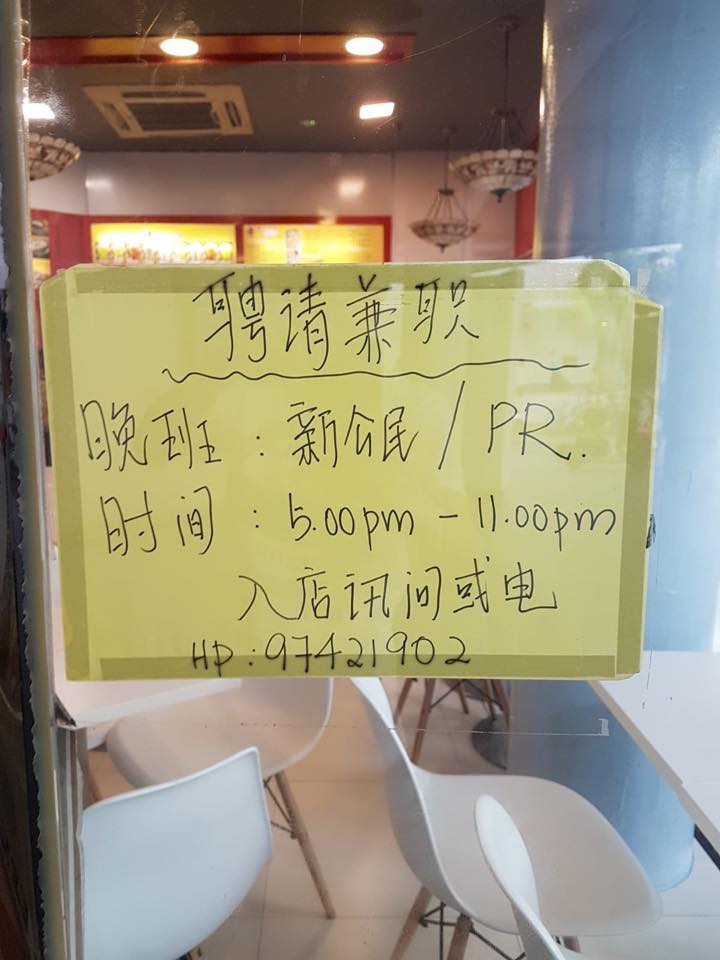 聘请兼职
晚班 : 新公民 / PR.
时间 : 5.00pm - 11.00pm
入店讯问或电
HP : 97421902